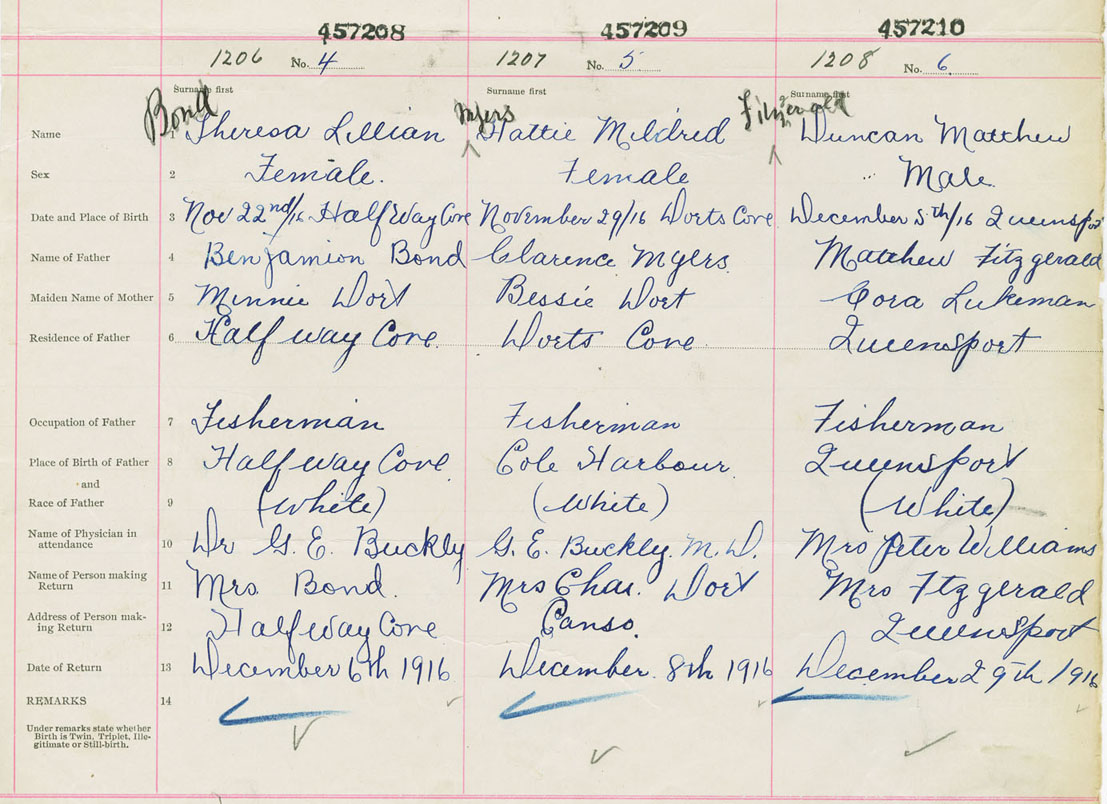 457208 457209 457210
1206 No. 4 1207 No. 5 1208 No. 6
Surname first Surname first Surname first
Bond Myers Fitzgerald
Name 1 Theresa Lillian Hattie Mildred Duncan Matthew
Sex 2 Female. Female Male
Date and Place of Birth 3 Nov 22nd/16 Half Way Cove November 29/16 Dorts Cove December 5th/16 Queensport
Name of Father 4 Benjamion Bond Clarence Myers. Matthew Fitzgerald
Maiden Name of Mother 5 Minnie Dort Bessie Dort Cora Lukeman
Residence of Father 6 Half way Cove. Dorts Cove Queensport
Occupation of Father 7 Fisherman Fisherman Fisherman
Place of Birth of Father 8 Half way Cove Cole Harbour Queensport
and
Race of Father 9 (White) (White) (White)
Name of Physician in
attendance 10 Dr G. E. Buckly G. E. Buckly. M. D. Mrs Peter Williams
Name of Person making
Return 11 Mrs. Bond. Mrs Chas. Dort Mrs Fitzgerald
Address of Person mak-
ing Return 12 Half way Cove Canso. Queensport
Date of Return 13 December 6th 1916 December. 8th 1916 December 29th 1916
REMARKS 14
Under remarks state whether
Birth is Twin, Triplet, Ille-
gitimate or Still-birth.